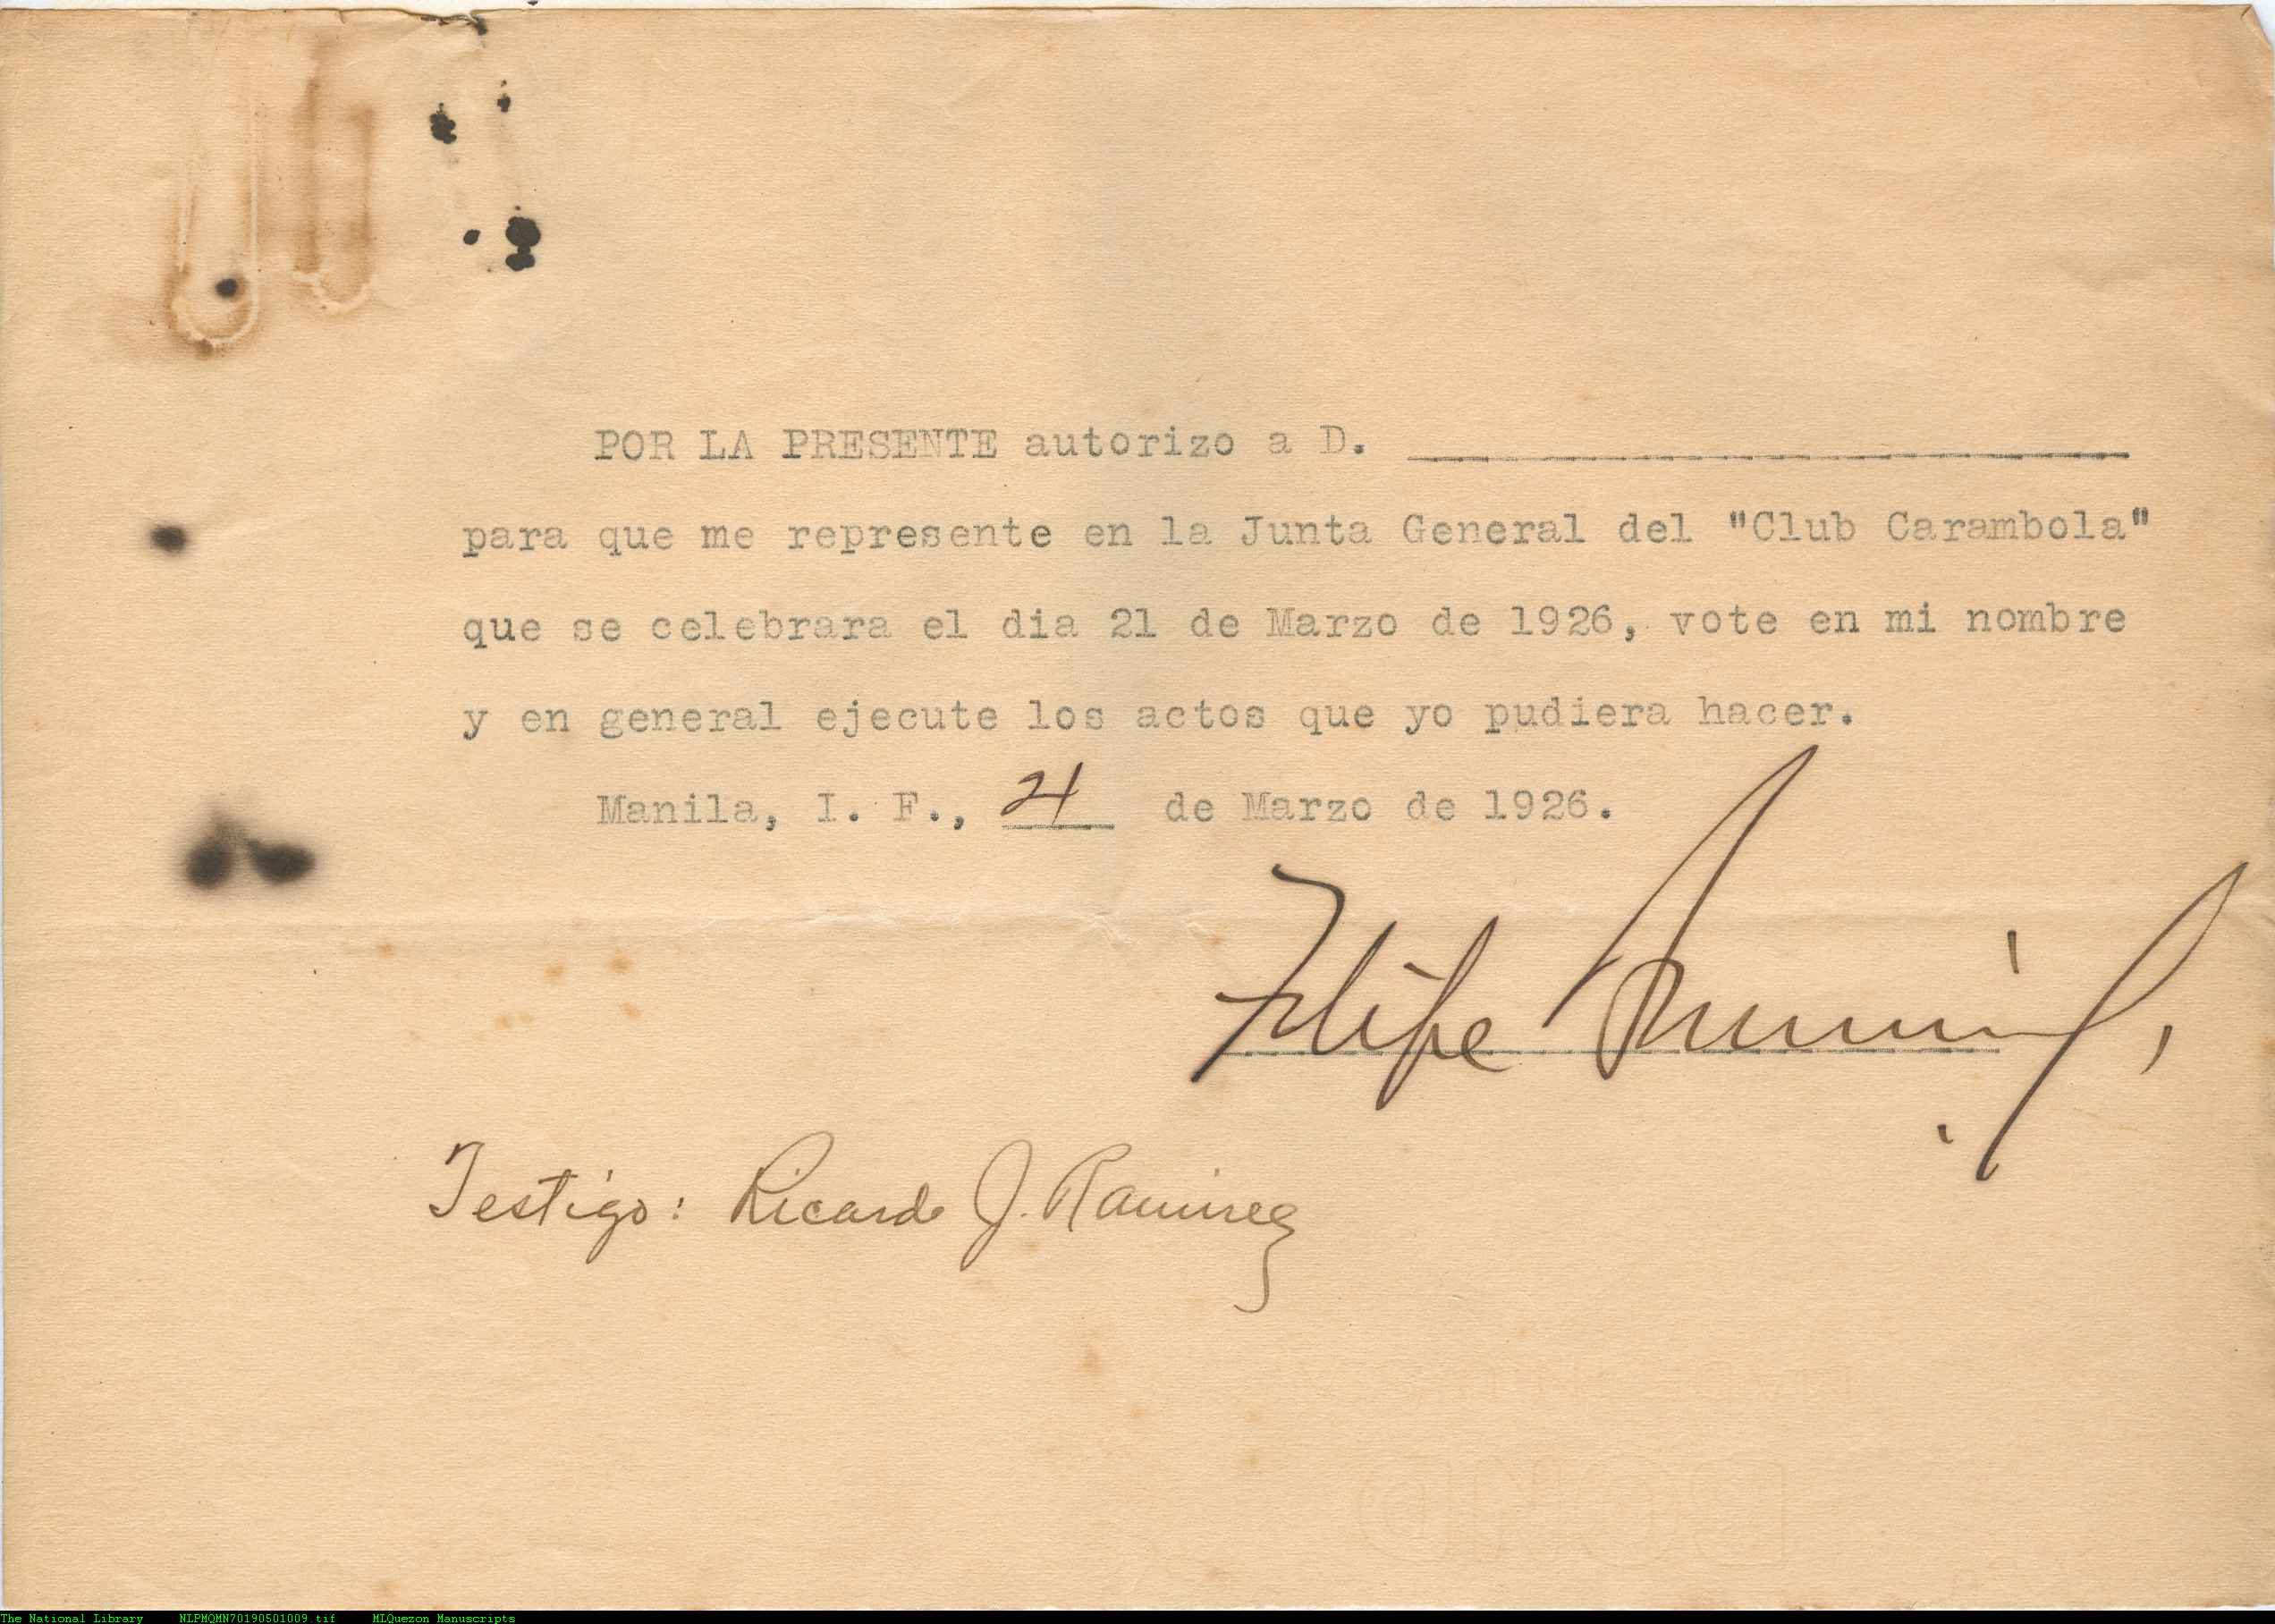 POR LA PRESENTE autorizo a D. ____________
para que me represente en la Junta General del "Club Carambola"
que se celebrara el dia 21 de Marzo de 1926, vote en mi nombre
y en general ejecute los actos que yo pudiera hacer.
Manila, I. F., 21 de Marzo de 1926.
Felipe
Testigo: Ricardo J. Ramirez
BOND
The National Library NLPMQMN70190501009.tif MLQuezon Manuscripts